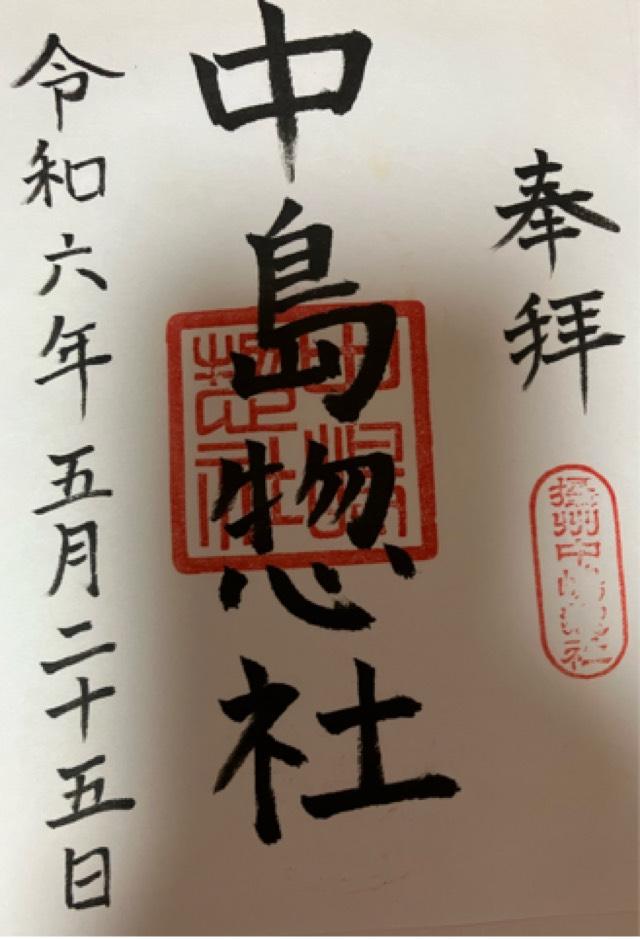 奉拝
摂州中島惣社
中島惣社
中嶋惣社
令和六年五月二十五日